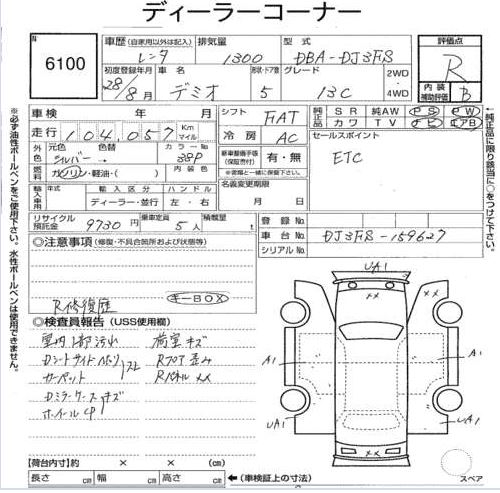 ディーラーコーナー
No 6100
車歴 (自家用以外は記入) レンタ
排気量 1300
型式 DBA-DJ3FS
評価点 R
初度登録年月 28年8月
車名 デミオ
形状・ドア数 5
グレード 13C
2WD・4WD
内装補助評価 B
車検 年 月
シフト FAT
純正品 SR 純AW PS PW
カワ TV ナビ エアB
走行 104,057 Km マイル
冷房 AC
セールスポイント
ETC
外色 元色 シルバー 色替
カラーNo 38P
内装色
燃料 ガソリン・軽油・( )
新車整備手帳(保証書付) 有・無
※書類と一緒に保管下さい。
輸入車用 年式 輸入区分 ディーラー・並行 ハンドル 左・右
名義変更期限 月 日
リサイクル預託金 9730円
乗車定員 5人
積載量
登録No.
車台No. DJ3FS-159627
シリアルNo.
◎注意事項 (修復・不具合箇所および状態等)
R修復歴
キーBOX
◎検査員報告 (USS使用欄)
室内上部汚れ
荷室キズ
Dシートサイドヘバリ
スレ
Rフロア歪み
カーペット
Rパネルメメ
Dミラーケースキズ
ホイール中
UA1
××
A1
A1
UA1
UA1
××
UA1
【荷台内寸】約 × × (cm)
長さ cm 幅 cm 高さ cm
←(車検証上の寸法)
スペア
※必ず油性ボールペンをご使用下さい。水性ボールペンは使用できません。
※純正品に限り該当に○をつけて下さい。